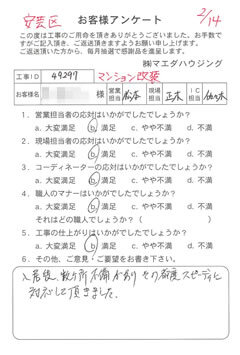 安芸区 お客様アンケート 2/14
この度は工事のご用命を頂きありがとうございました。お手数で
すがご記入頂き、ご返送頂きますようお願い申し上げます。
ご返送頂いた方から、毎月抽選で感謝品を進呈します。
㈱マエダハウジング
工事ID 49297 マンション改装
お客様名 様 営業担当 現場担当 正木 IC担当 佐々木
1. 営業担当者の応対はいかがでしたでしょうか?
a. 大変満足 b. 満足 c. やや不満 d. 不満
2. 現場担当者の応対はいかがでしたでしょうか?
a. 大変満足 b. 満足 c. やや不満 d. 不満
3. コーディネーターの応対はいかがでしたでしょうか?
a. 大変満足 b. 満足 c. やや不満 d. 不満
4. 職人のマナーはいかがでしたでしょうか?
a. 大変満足 b. 満足 c. やや不満 d. 不満
それはどの職人でしょうか?( )
5. 工事の仕上がりはいかがでしたでしょうか?
a. 大変満足 b. 満足 c. やや不満 d. 不満
6. その他、ご意見・ご要望をお書き下さい。
入居後、数ヶ所不備があり その都度スピーディに
対応して頂きました。